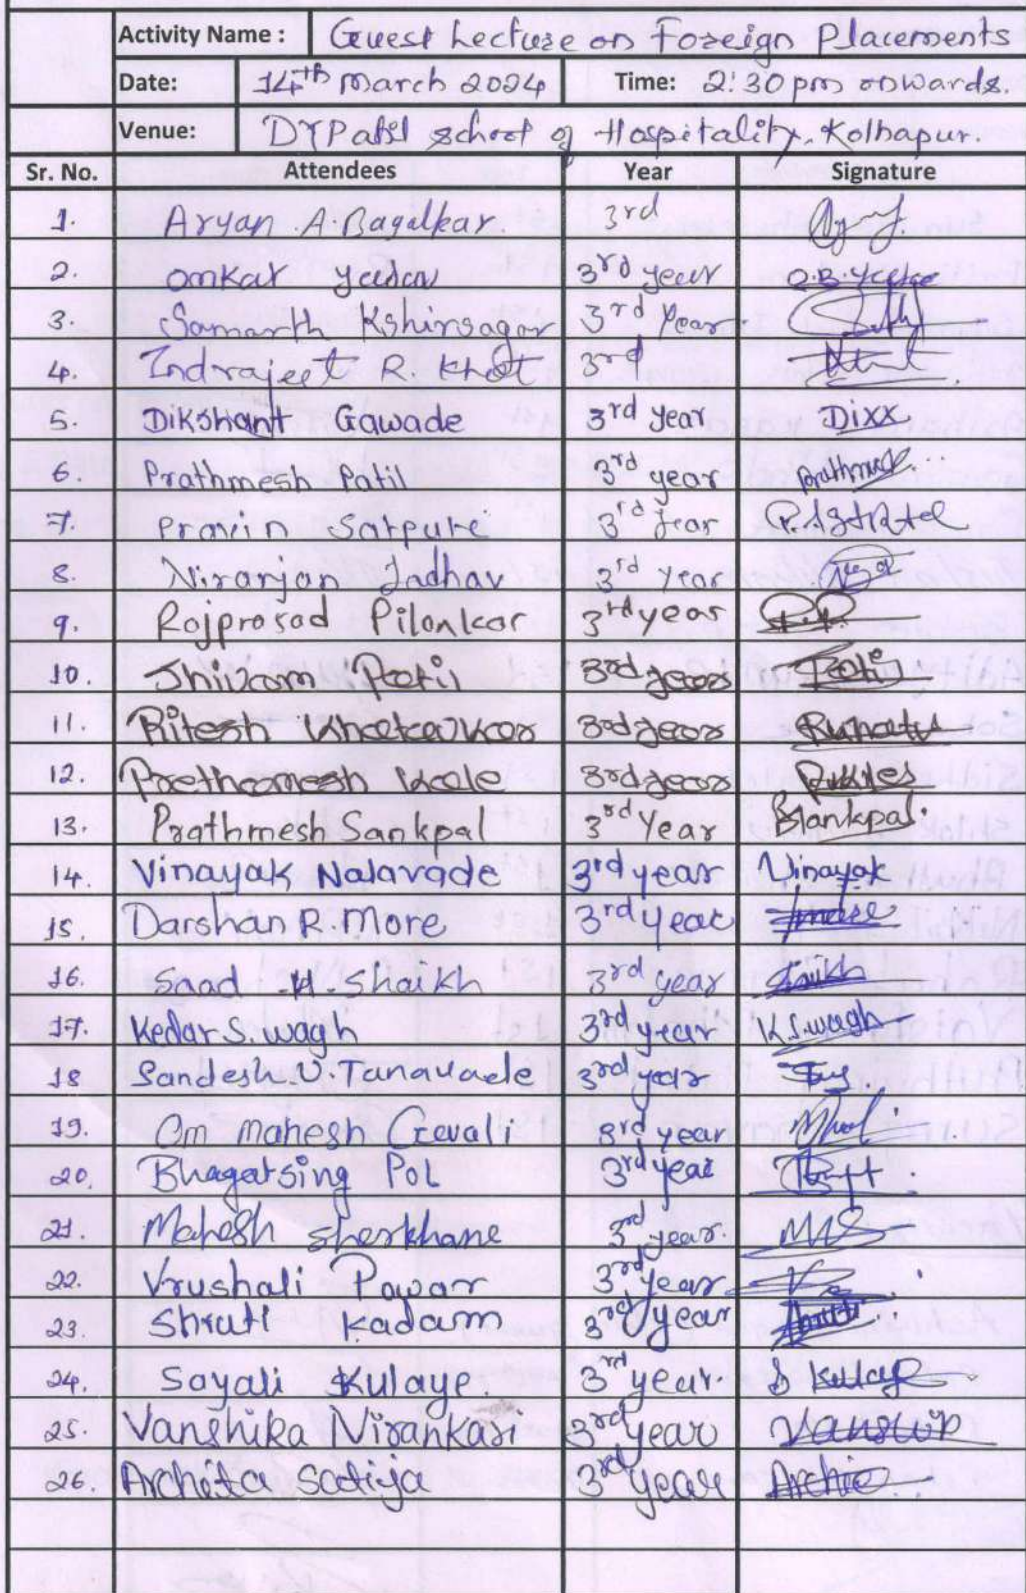 Activity Name : Guest Lecture on Foreign Placements
Date: 14th March 2024 Time: 2:30 pm onwards.
Venue: DY Patil School of Hospitality, Kolhapur.
Sr. No. Attendees Year Signature
1. Aryan A. Bagalkar. 3rd
2. Omkar Yadav 3rd year
3. Samarth Kshirsagar 3rd Year
4. Indrajeet R. Khot 3rd
5. Dikshant Gawade 3rd year Dixx
6. Prathmesh Patil 3rd year
7. Pravin Satpute 3rd year
8. Niranjan Jadhav 3rd Year
9. Rajprasad Pilankar 3rd year
10. Patil 3rd year
11. Ritesh 3rd year
12. Prathamesh Kale 3rd year
13. Prathmesh Sankpal 3rd Year
14. Vinayak Nalavade 3rd year Vinayak
15. Darshan R. More 3rd year
16. Saad .H. Shaikh 3rd year
17. Kedar S. wagh 3rd year K.S.wagh
18 Sandesh.V.Tanavade 3rd year
19. Om Mahesh Gevali 3rd year
20. Bhagatsing Pol 3rd year
21. Mahesh Sherkhane 3rd year.
22. Vrushali Powar 3rd year
23. Shruti Kadam 3rd year
24. Sayali Kulaye. 3rd year. S Kulaye
25. Vanshika Nirankari 3rd year
26. Archita Sadija 3rd year Archie